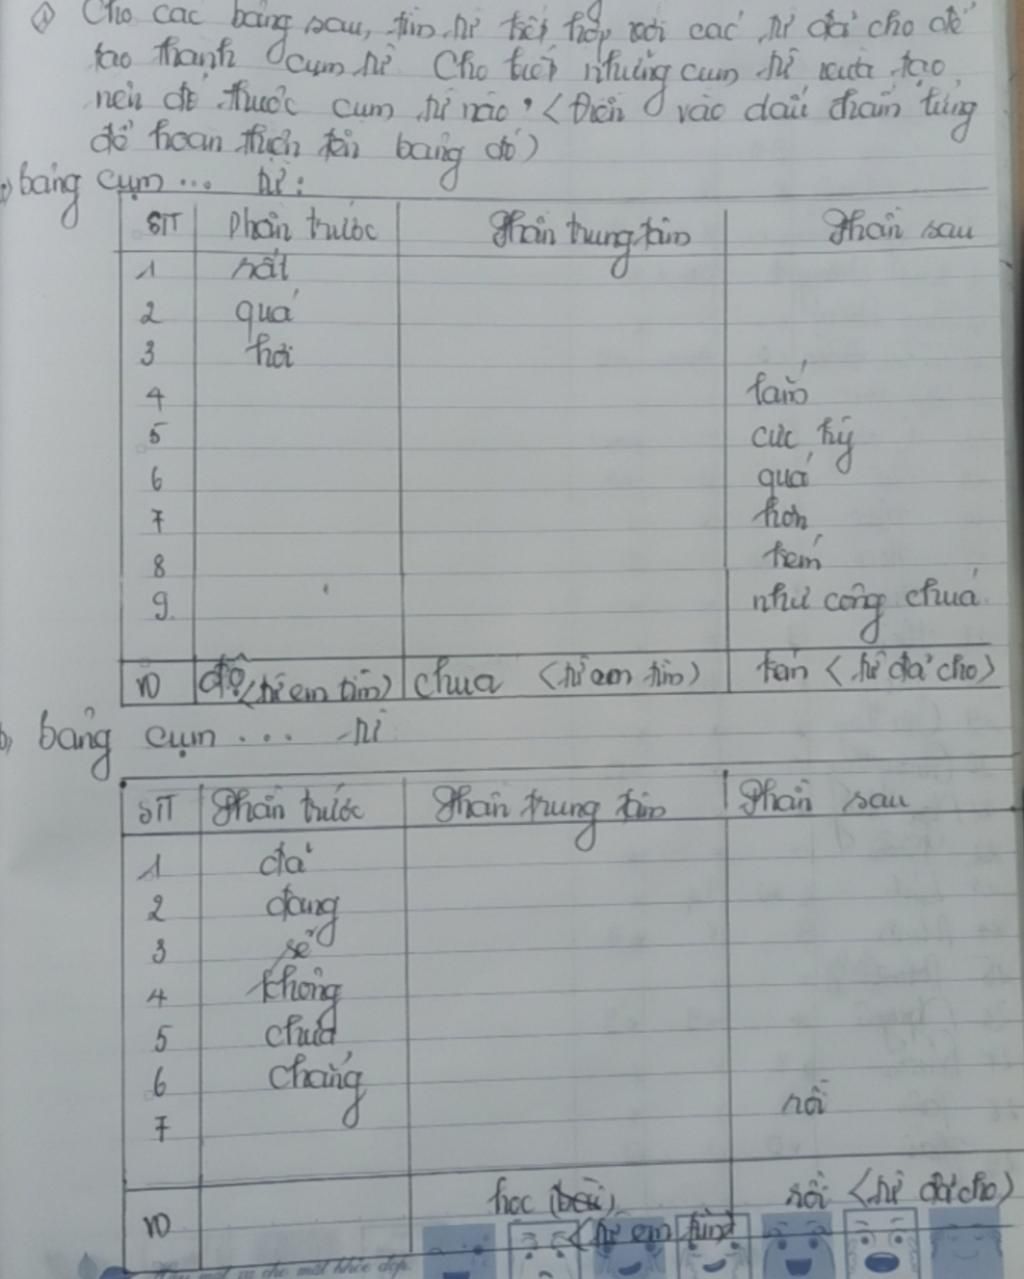 Cho các bảng sau, tìm từ kết hợp với các từ đã cho để
tạo thành cụm từ. Cho biết những cụm từ vừa tạo
nên đó thuộc cụm từ nào? (Điền vào dấu chấm lửng
để hoàn thiện tên bảng đó)
bảng cụm ... từ:
STT Phần trước Phần trung tâm Phần sau
1 rất
2 quá
3 hơi
4 lắm
5 cực kỳ
6 quá
7 hơn
8 kém
9. như công chúa
VD chua (từ em tìm) lắm (từ đã cho)
b, bảng cụm ... từ
STT Phần trước Phần trung tâm Phần sau
1 đã
2 đang
3 sẽ
4 không
5 chưa
6 chẳng
7 rồi
VD học (bài) rồi (từ đã cho)
(từ em tìm)